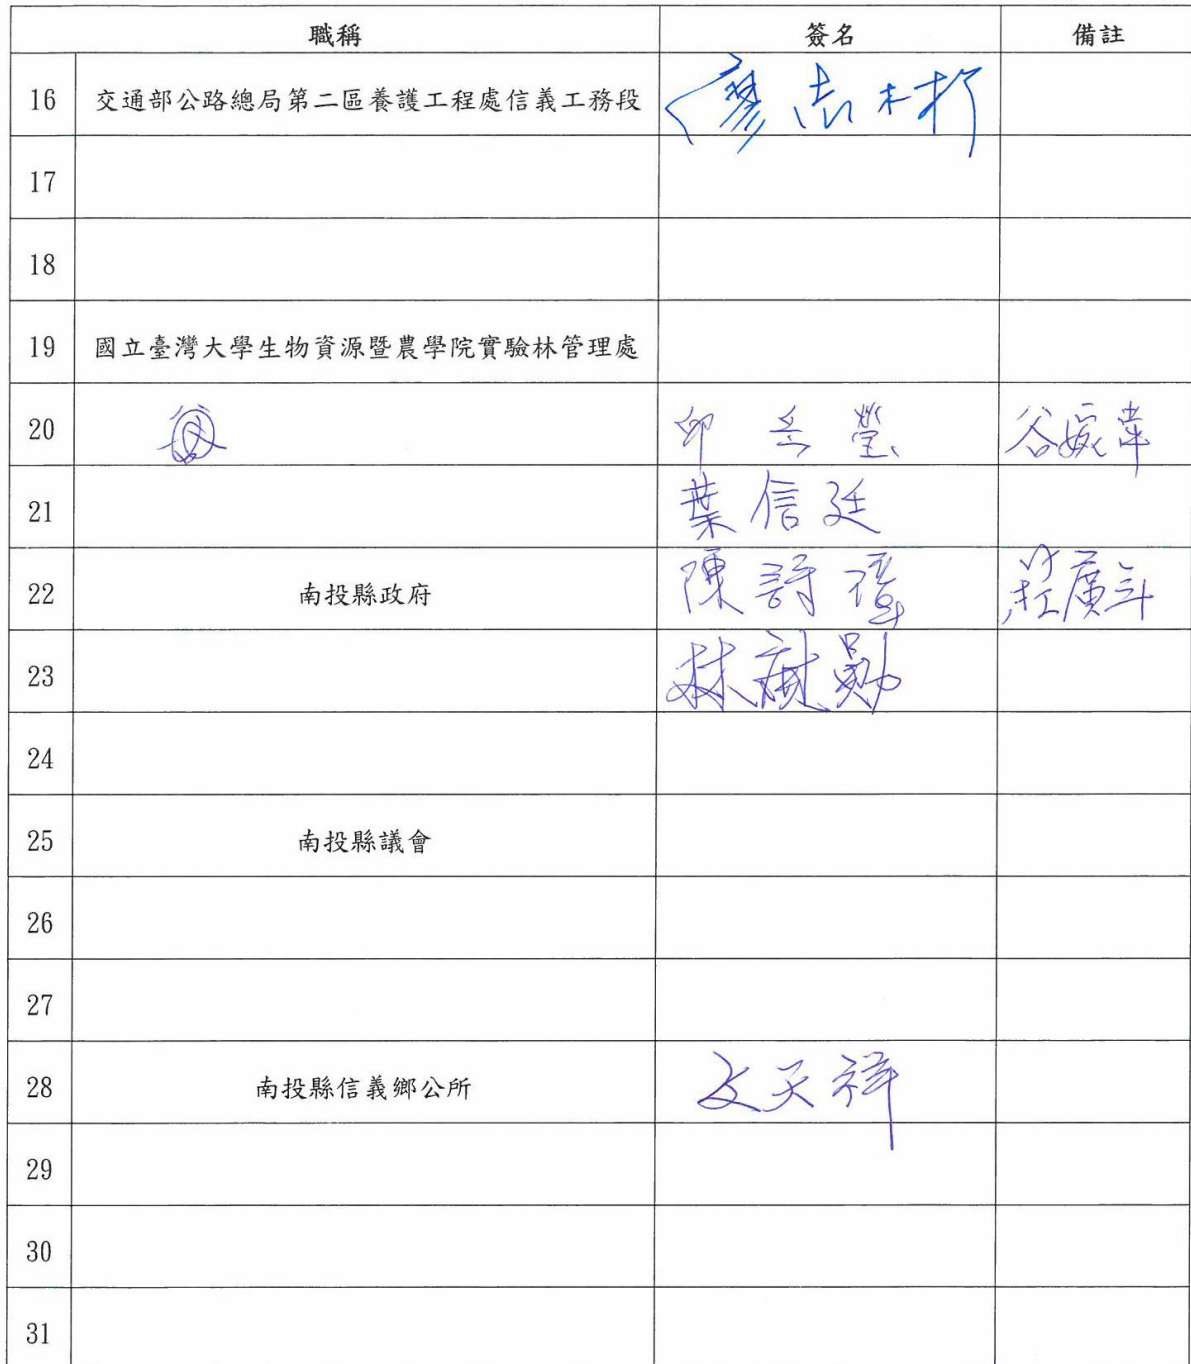 職稱 簽名 備註
16 交通部公路總局第二區養護工程處信義工務段 廖志
17
18
19 國立臺灣大學生物資源暨農學院實驗林管理處
20 邱岳瑩 谷
21 葉信廷
22 南投縣政府 陳詩 莊廣
23 林 勳
24
25 南投縣議會
26
27
28 南投縣信義鄉公所 文天祥
29
30
31